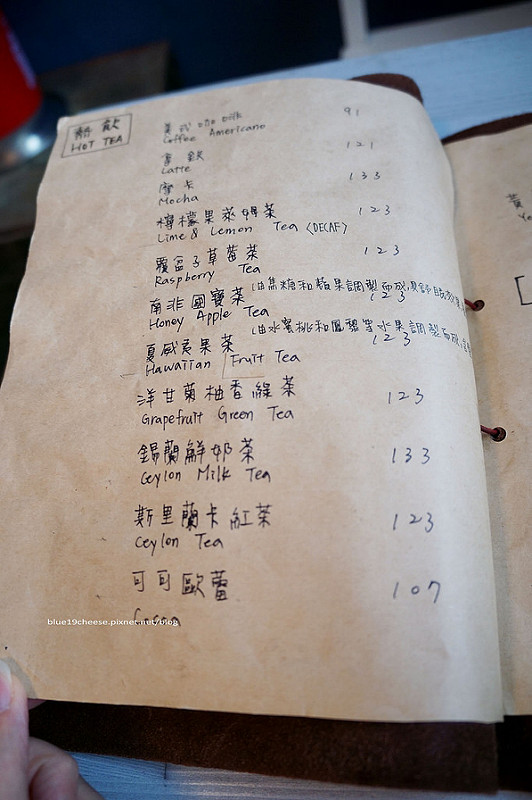 熱飲
HOT TEA
美式咖啡 91
Coffee Americano
拿鐵 121
Latte
摩卡 133
Mocha
檸檬果蒸姆茶 123
Lime & Lemon Tea <DECAF>
覆盆子草莓茶 123
Raspberry Tea
南非國寶茶 123
(由焦糖和蘋果調製而成
Honey Apple Tea
(由水蜜桃和鳳梨等水果調製而成
夏威夷果茶 123
Hawaiian Fruit Tea
洋甘菊柚香綠茶 123
Grapefruit Green Tea
錫蘭鮮奶茶 133
Ceylon Milk Tea
斯里蘭卡紅茶 123
Ceylon Tea
可可歐蕾 107
Cocoa
blue19cheese.pixnet.net/blog
黃